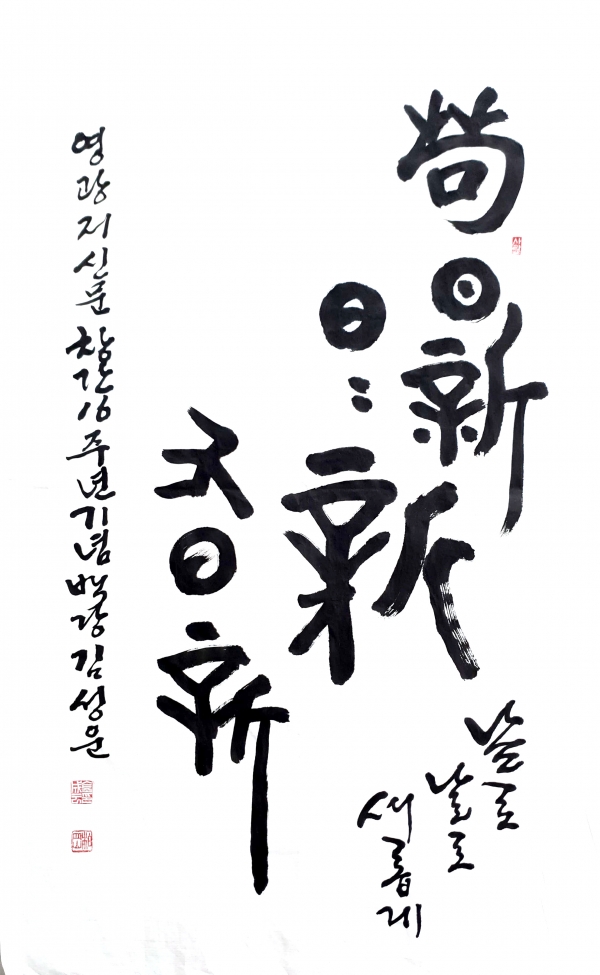 苟日新
日〻新
又日新
날로
날로
새롭게
영광저신문 창간16주년기념 백강 김성운